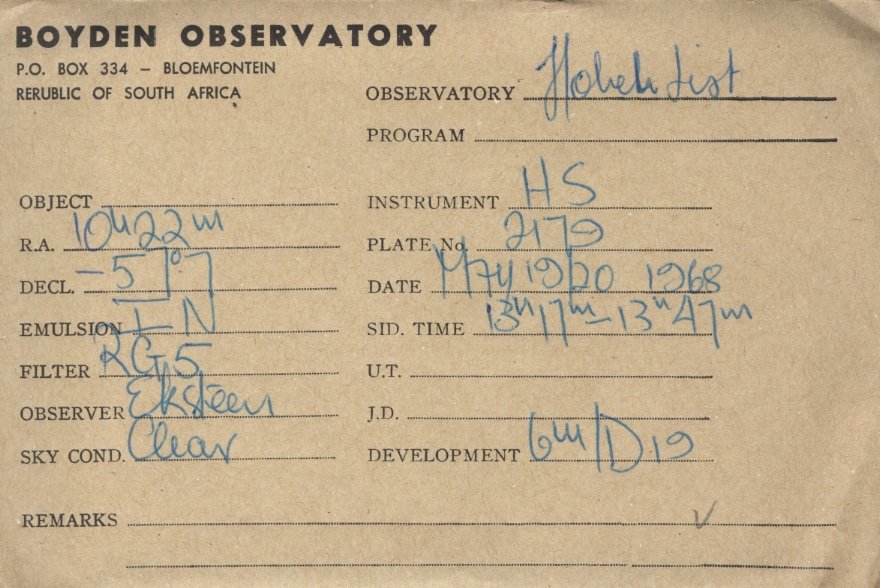 BOYDEN OBSERVATORY
P.O. BOX 334 – BLOEMFONTEIN
RERUBLIC OF SOUTH AFRICA
OBSERVATORY Hoheh List
PROGRAM
OBJECT
R.A. 10h22m
DECL. -57°.7
EMULSION I N
FILTER RG5
OBSERVER Eksteen
SKY COND. Clear
INSTRUMENT HS
PLATE No. 2179
DATE May 19/20 1968
SID. TIME 13h17m-13h47m
U.T.
J.D.
DEVELOPMENT 6m/D19
REMARKS